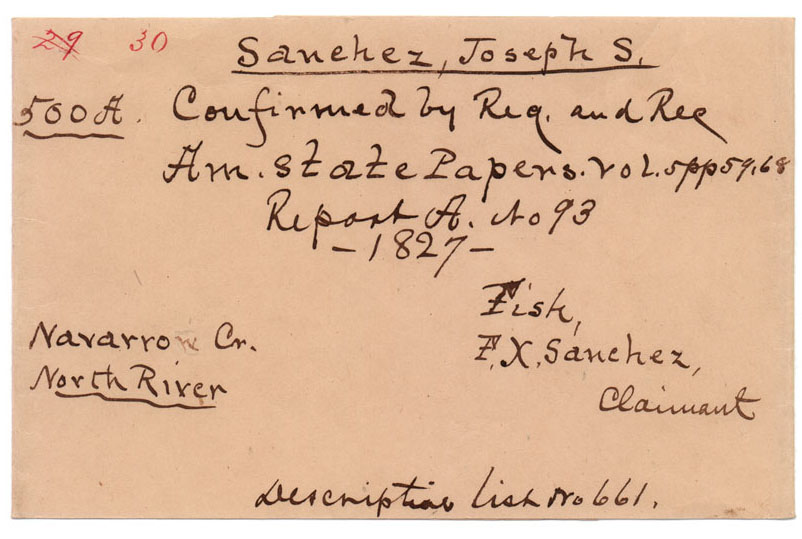 29 30
Sanchez, Joseph S.
500 A. Confirmed by Reg. and Rec
Am. State Papers. vol. 5 pp 59, 68
Report A. No 93
- 1827 -
Fish,
Navarro Cr.
F. X. Sanchez,
North River
Claimant
Descriptive list No 661.